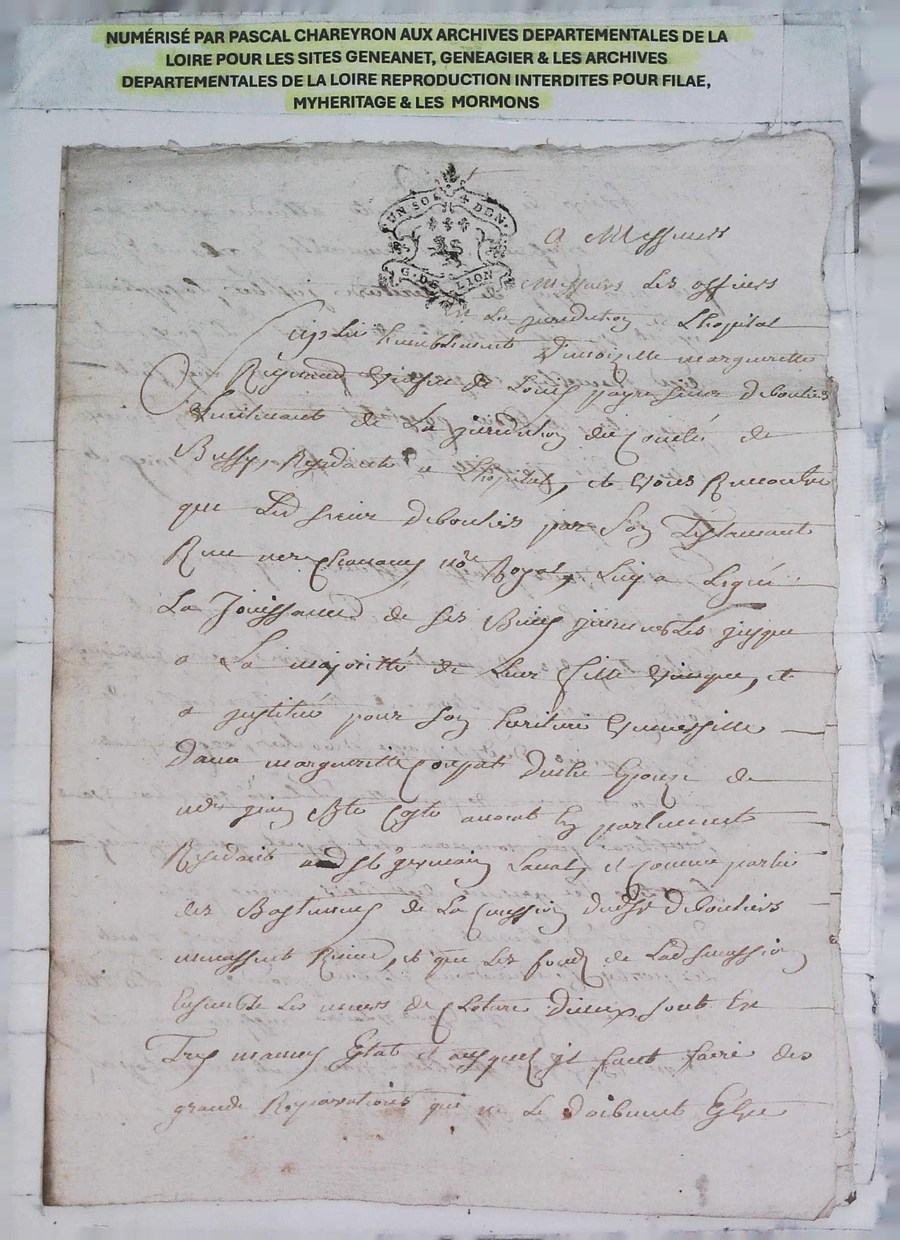 NUMÉRISÉ PAR PASCAL CHAREYRON AUX ARCHIVES DEPARTEMENTALES DE LA
LOIRE POUR LES SITES GENEANET, GENEAGIER & LES ARCHIVES
DEPARTEMENTALES DE LA LOIRE REPRODUCTION INTERDITES POUR FILAE,
MYHERITAGE & LES MORMONS
UN SOL 4 DEN.
G. DE LION
A Messieurs
Messieurs Les officiers
En La jurediction de Lhopital
Suplie humblement Dmoizelle margueritte
Reymond Veufve de Louis payre sieur deboutiers
Lieutenant de La jurediction du Comté de
Bussy, Residante a Lhopital, et Vous Remontre
que Led sieur deboutiers par son Testament
Recu me Royal, Luy a Legué
La Jouissance de ses Biens jusque
a La majoritté de Leur fille Unique, et
a justitué pour son heritiere Universelle
Dame margueritte Coupat d'Epouze de
me jean Bte Coste avocat En parlement
Residant a St germain Laval, et comme partie
des Bastiments de La deboutiers
menassent Ruine, et que Les fonds de Lad
Ensemble Les murs de Cloture D'iceux sont En
Tres mauvais Etat et ausquels jl faut faire des
grande Reparations qui ne Le doibvent Estre